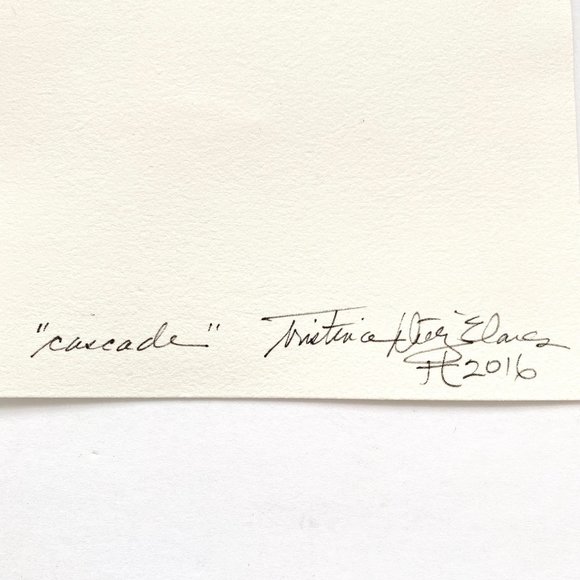 "cascade" Tristina Dietz Elmes
2016